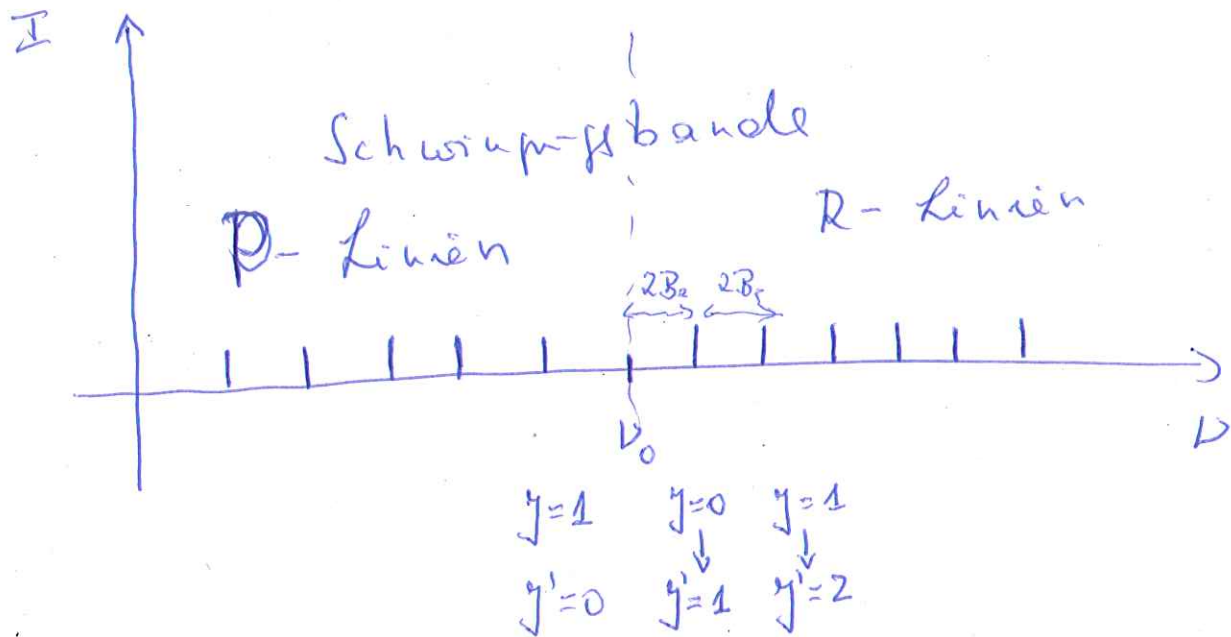 I
Schwingungsbande
P- Linien
R- Linien
2Be 2Be
ν₀
ν
J=1 J=0 J=1
J'=0 J'=1 J'=2